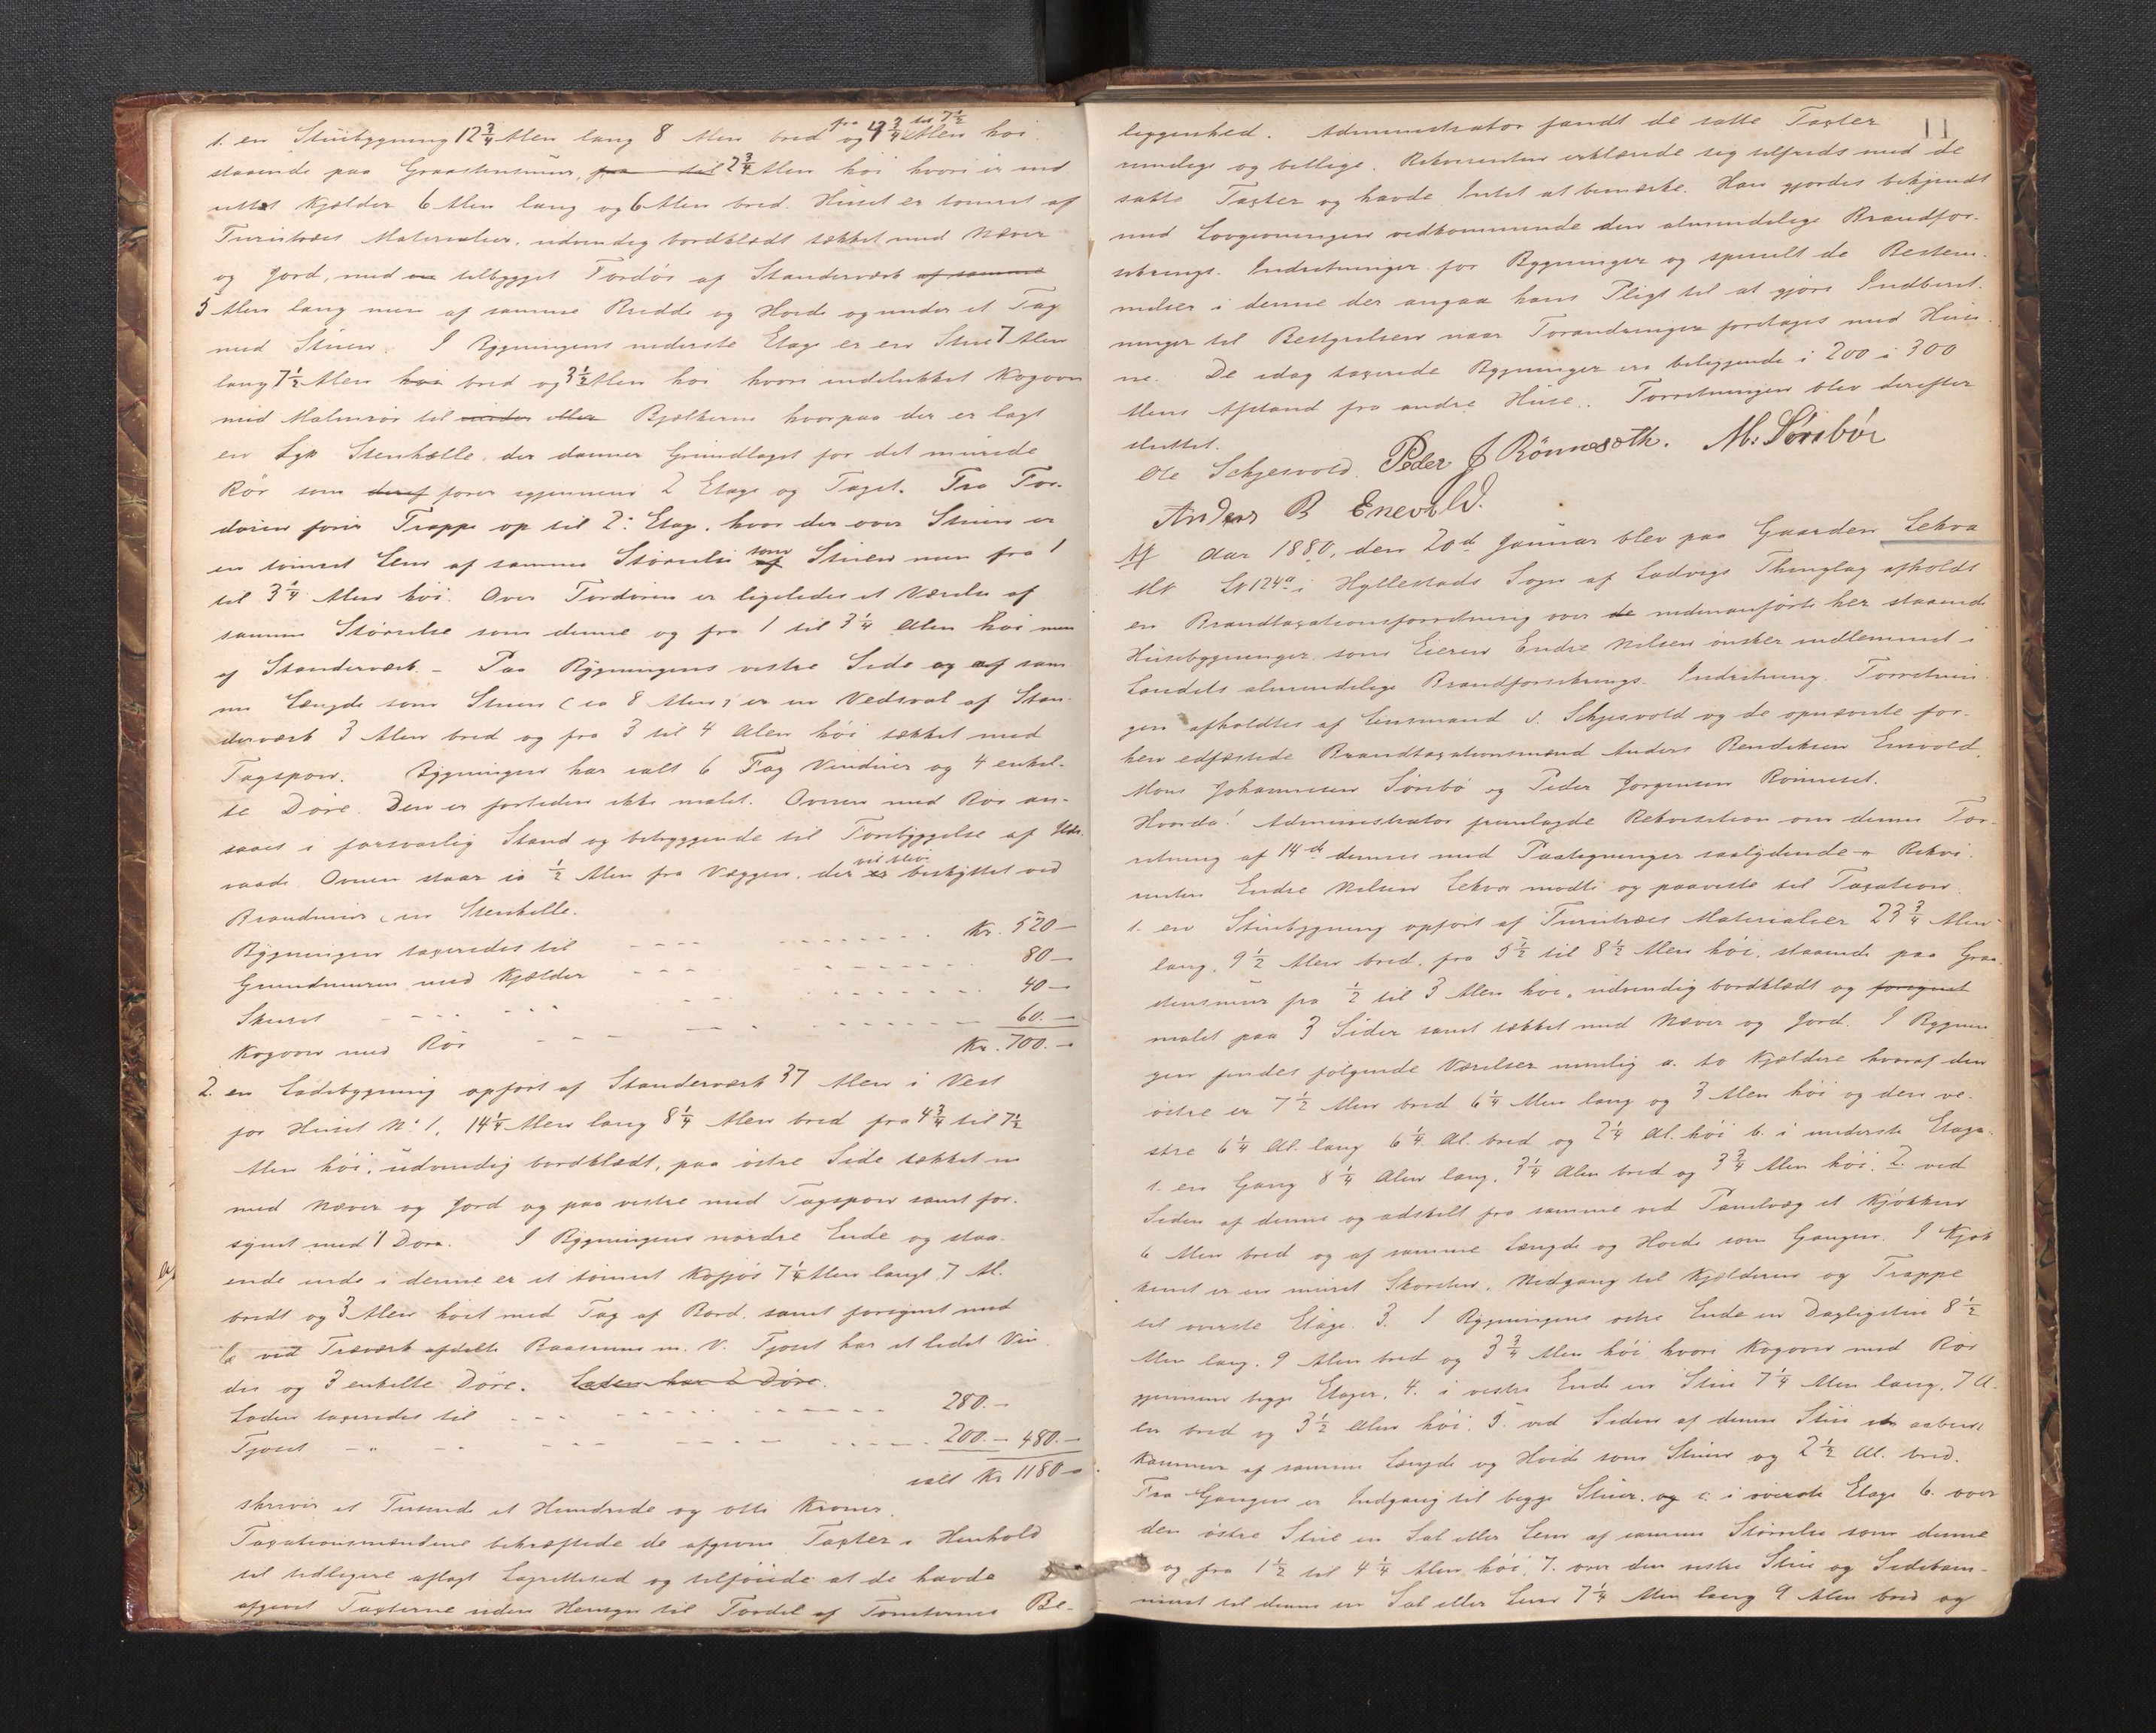 1. en Stuebygning 12 3/4 Alen lang 8 Alen bred og fra 4 3/4 til 7 1/2 Alen høi
staaende paa Graastensmuur, fra til 2 3/4 Alen høi hvori er ind
rettet Kjælder 6 Alen lang og 6 Alen bred. Huset er tømret af
Furutræes Materialier, udvendig bordklædt tækket med Næver
og Jord, med en tilbygget Fordør af Standerværk af samme
5 Alen lang men af samme Bredde og Høide og under et Tag
med Stuen. I Bygningens nederste Etage er en Stue 7 Alen
lang 7 1/2 Alen høi bred og 3 1/2 Alen høi hvori indelukket Kogoven
med Malmrør til under eller Bjælkerne hvorpaa der er lagt
en tyk Stenhelle, der danner Grundlaget for det murede
Rør som deraf fører igjennem 2 Etage og Taget. Fra For-
døren fører Trappe op til 2: Etage, hvor der over Stuen er
en tømret Lem af samme Størrelse af som Stuen men fra 1
til 3 1/4 Alen høi. Over Fordøren er ligeledes et Værelse af
samme Størrelse som denne og fra 1 til 3 1/4 Alen høi men
af Standerværk. – Paa Bygningens vestre Side og af sam
me Længde som Stuen (ca 8 Alen) er en Vedsval af Stan-
derværk 3 Alen bred og fra 3 til 4 Alen høi tækket med
Tagspon. Bygningen har ialt 6 Fag Vinduer og 4 enkel-
te Døre. Den er fortiden ikke malet. Ovnen med Rør an-
saaes i forsvarlig Stand og betryggende til Forebyggelse af Ilds
vaade. Ovnen staar ca 1/2 Alen fra Væggen, der er vil blive beskyttet ved
Brandmuur (en Stenhelle.
Bygningen taxeredes til - - - - Kr. 520 –
Grundmuren med Kjælder - - - 80 –
Skuret - - - - 40 –
Kogovn med Rør - - - 60. –
Kr. 700. –
2. en Ladebygning opført af Standerværk 37 Alen i Vest
for Huset No 1, 14 1/4 Alen lang 8 1/4 Alen bred fra 4 3/4 til 7 1/2
Alen høi, udvendig bordklædt, paa østre Side tækket
med Næver og Jord og paa vestre med Tagspon samt for-
synet med 1 Dør. I Bygningens nordre Ende og staa-
ende inde i denne er et tømret Kofjøs 7 1/4 Alen langt 7 Al.
bredt og 3 Alen høit med Tag af Bord samt forsynet med
ved Træværk afdelte Baasrum m. V. Fjøset har et lidet Vin
du og 3 enkelte Døre. Laden har 2 Døre.
Laden taxeredes til - - - - 280. –
Fjøset - - - - 200. – 480. –
ialt Kr 1180 –
skriver et Tusinde et Hundrede og otti Kroner.
Taxationsmændene bekræftede de afgivne Taxter i Henhold
til tidligere aflagt Lagretteed og tilføiede at de havde
afgivet Taxterne uden Hensyn til Fordel af Tomternes Be-
11
liggenhed. Administrator fandt de satte Taxter
rimelige og billige. Rekvirenten erklærede sig tilfreds med de
satte Taxter og havde Intet at bemærke. Han gjordes bekjendt
med Lovgivningen vedkommende den almindelige Brandfor-
sikrings-Indretninger for Bygninger og specielt de Bestem-
melser i denne der angaa hans Pligt til at gjøre Indberet-
ninger til Bestyrelsen naar Forandringer foretages med Huse-
ne. De idag taxerede Bygninger ere beliggende i 200 à 300
Alens Afstand fra andre Huse. Forretningen blev derefter
sluttet.
Ole Schjesvold. Peder J Rönneseth. M. Sörebör
Anders B Enevold.
Aar 1880, den 20de Januar blev paa Gaarden Lekva
M No Lb 124a i Hyllestads Sogn af Ladvigs Thinglag afholdt
en Brandtaxationsforretning over de nedenanførte her staaende
Husebygninger som Eieren Endre Nilsen ønsker indlemmet i
Landets almindelige Brandforsikrings-Indretning. Forretnin-
gen afholdtes af Lensmand O. Schjesvold og de opnævnte for-
hen edfæstede Brandtaxationsmænd Anders Bendiksen Enevold,
Mons Johannesen Sørebø og Peder Jørgensen Rønneset.
Hvorda! Administrator fremlagde Rekvisition om denne For-
retning af 14de dennes med Paategninger saalydende – Rekvi-
renten Endre Nilsen Lekva mødte og paaviste til Taxation
1. en Stuebygning opført af Furutræes Materialier 23 3/4 Alen
lang, 9 1/2 Alen bred, fra 5 1/2 til 8 1/2 Alen høi, staaende paa Graa-
stensmuur fra 1/2 til 3 Alen høi, udvendig bordklædt og forsynet
malet paa 3 Sider samt tækket med Næver og Jord. I Bygnin
gen findes følgende Værelser nemlig a. to Kjældere hvoraf den
østre er 7 1/2 Alen bred 6 1/4 Alen lang og 3 Alen høi og den ve-
stre 6 1/4 Al. lang 6 1/4 Al. bred og 2 1/4 Al. høi b. i underste Etage
1. en Gang 8 1/4 Alen lang, 3 1/4 Alen bred og 3 3/4 Alen høi. 2. ved
Siden af denne og adskilt fra samme ved Panelvæg et Kjøkken
6 Alen bred og af samme Længde og Høide som Gangen. I Kjøk
kenet er en muret Skorsten, Nedgang til Kjælderen og Trappe
til øverste Etage. 3. I Bygningens østre Ende en Dagligstue 8 1/2
Alen lang, 9 Alen bred og 3 3/4 Alen høi hvori Kogovn med Rør
gjennem begge Etager. 4. i vestre Ende en Stue 7 1/4 Alen lang, 7 A-
len bred og 3 1/2 Alen høi. 5. ved Siden af denne Stue et aabent
Kammer af samme Længde og Høide som Stuen og 2 1/2 Al. bred.
Fra Gangen er Indgang til begge Stuer. og c. i øverste Etage 6. over
den østre Stue en Sal eller Lem af samme Størrelse som denne
og fra 1 1/2 til 4 1/4 Alen høi. 7. over den vestre Stue og Sidekam-
meret til denne en Sal eller Lem 7 1/4 Alen lang 9 Alen bred og